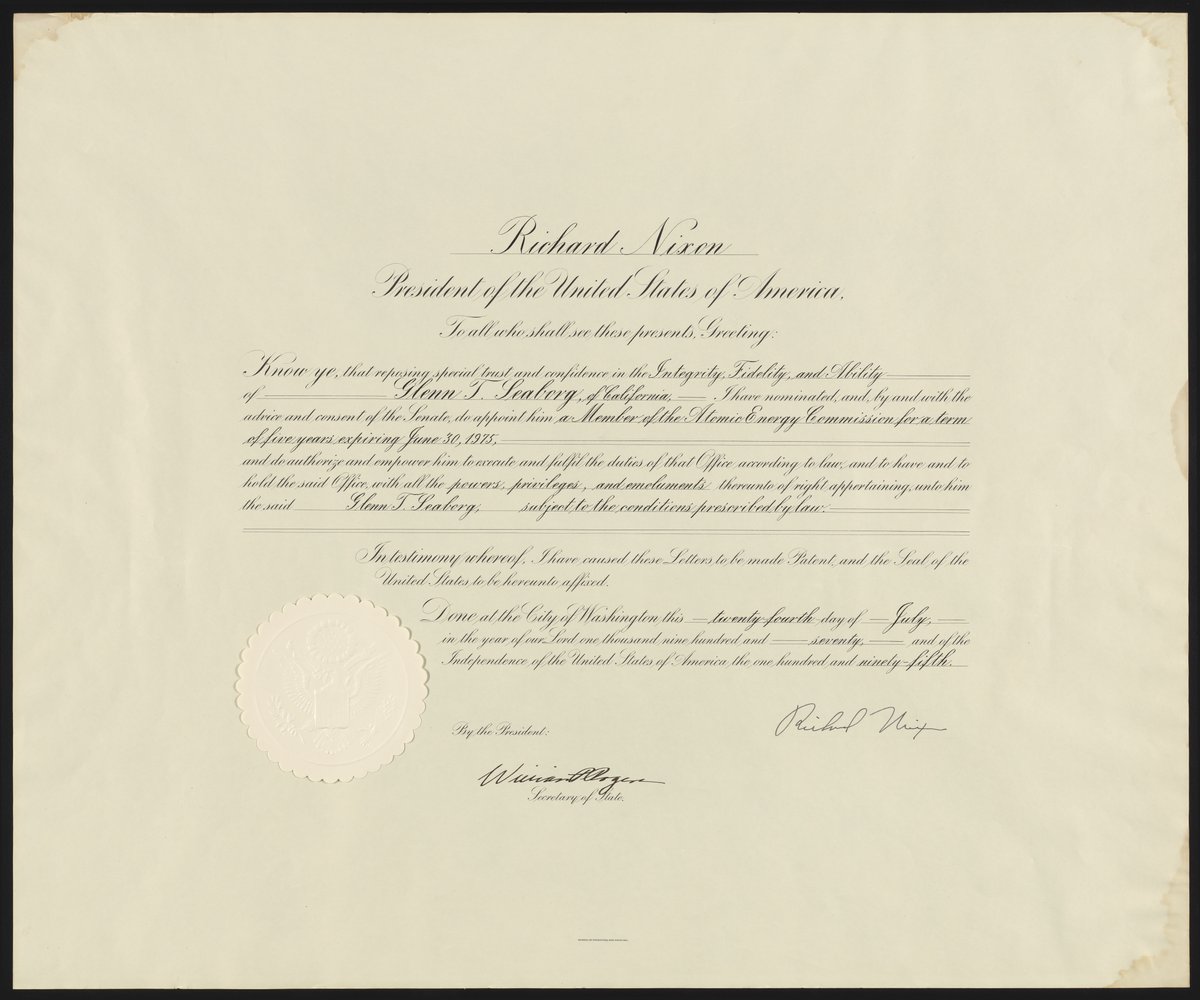 Richard Nixon
President of the United States of America,
To all who shall see these presents, Greeting:
Know ye, that reposing special trust and confidence in the Integrity, Fidelity, and Ability
of Glenn T. Seaborg, of California, I have nominated, and, by and with the
advice and consent of the Senate, do appoint him a Member of the Atomic Energy Commission for a term
of five years expiring June 30, 1975,
and do authorize and empower him to execute and fulfil the duties of that Office according to law, and to have and to
hold the said Office, with all the powers, privileges, and emoluments thereunto of right appertaining, unto him
the said Glenn T. Seaborg, subject to the conditions prescribed by law.
In testimony whereof, I have caused these Letters to be made Patent, and the Seal of the
United States to be hereunto affixed.
Done at the City of Washington this twenty-fourth day of July,
in the year of our Lord one thousand nine hundred and seventy, and of the
Independence of the United States of America the one hundred and ninety-fifth.
Richard Nixon
By the President:
William P Rogers
Secretary of State.